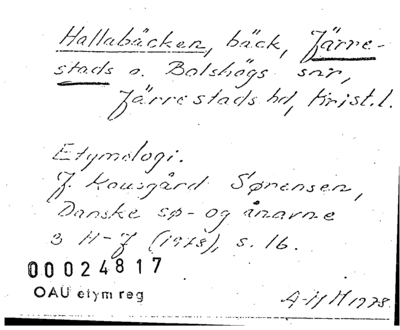 Hallabäcken, bäck, Järre-
stads o. Bolshögs snr,
Järrestads hd, Krist. l.
Etymologi.
J. Kousgård Sørensen,
Danske sø- og ånavne
3 H-J (1978), s. 16.
00024817
OAU etym reg
A-H M 1978